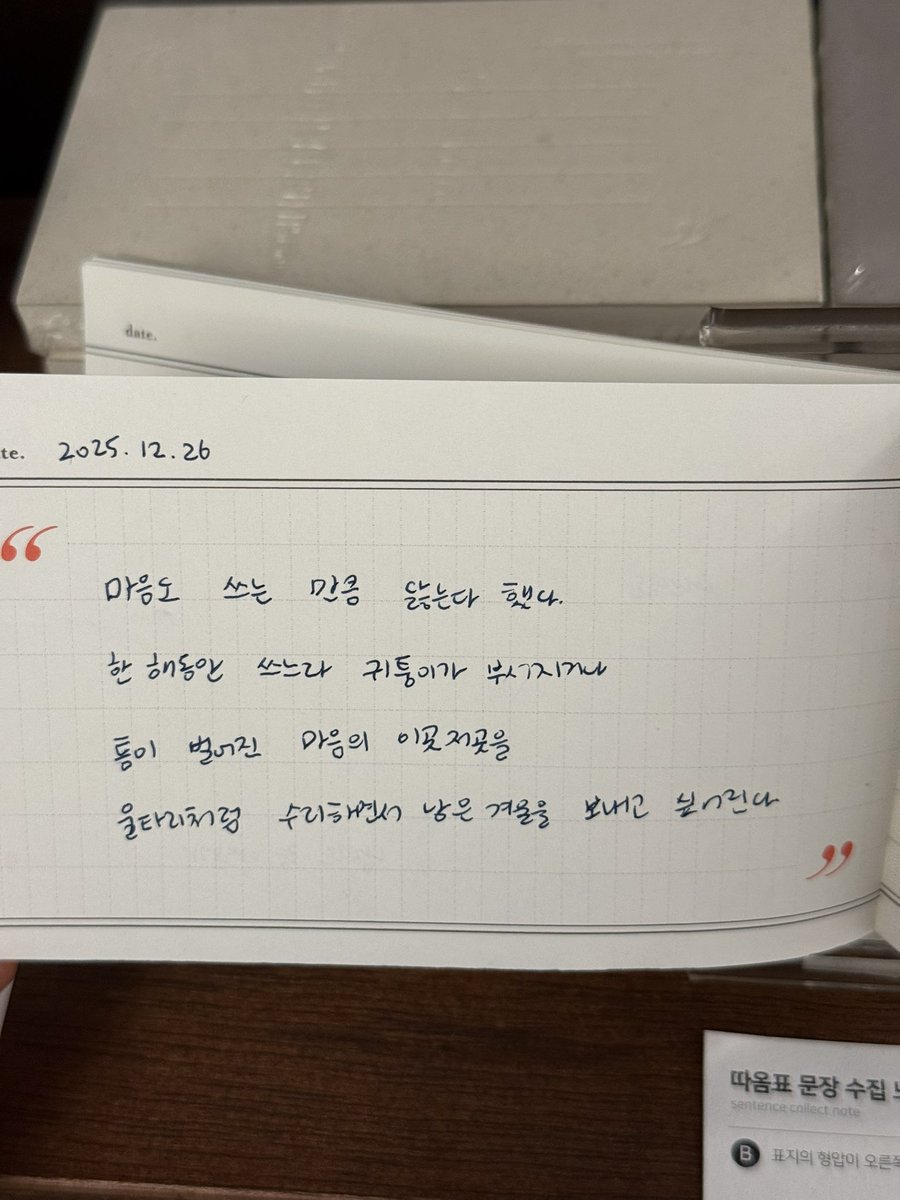 date.
te. 2025.12.26
“
마음도 쓰는 만큼 닳는다 했다.
한 해동안 쓰느라 귀퉁이가 부서지거나
틈이 벌어진 마음의 이곳저곳을
울타리처럼 수리해면서 남은 겨울을 보내고 싶어진다
”
따옴표 문장 수집 노
sentence collect note
B 표지의 형압이 오른쪽